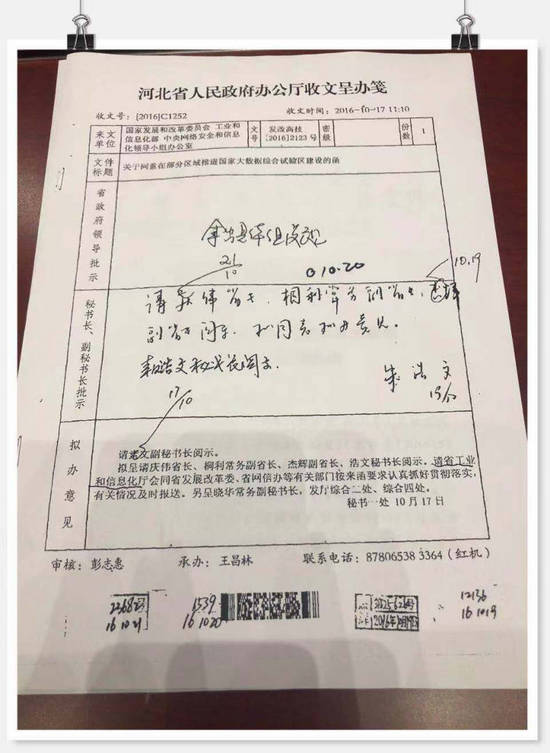 河北省人民政府办公厅收文呈办笺
收文号: [2016]C1252 收文时间: 2016-10-17 11:10
来文单位 国家发展和改革委员会 工业和信息化部 中央网络安全和信息化领导小组办公室 文号 发改高技[2016]2123号 密级 份数 1
文件标题 关于同意在部分区域推进国家大数据综合试验区建设的函
省政府领导批示
21/10
10.20
10.19
秘书长、副秘书长批示
请庆伟省长、柳利常务副省长、杰辉
副省长阅示。拟同意拟办意见。
朱浩文
17/10
拟办意见
请老文副秘书长阅示。
拟呈请庆伟省长、柳利常务副省长、杰辉副省长、浩文秘书长阅示。请省工业
和信息化厅会同省发展改革委、省网信办等有关部门按来函要求认真抓好贯彻落实,
有关情况及时报送。另呈晓华常务副秘书长,发厅综合二处、综合四处。
秘书一处 10月17日
审核: 彭志惠 承办: 王昌林 联系电话: 87806538 3364 (红机)
1539
12136
16 1021
16 1020
16 1019